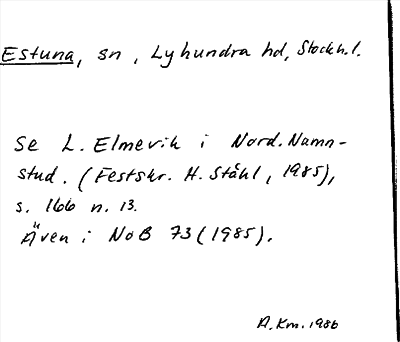 Estuna, sn, Lyhundra hd, Stockh.l.
Se L. Elmevik i Nord. Namn-
stud. (Festskr. H. Ståhl, 1985),
s. 166 n. 13.
Även i NoB 73 (1985).
A.Km. 1986